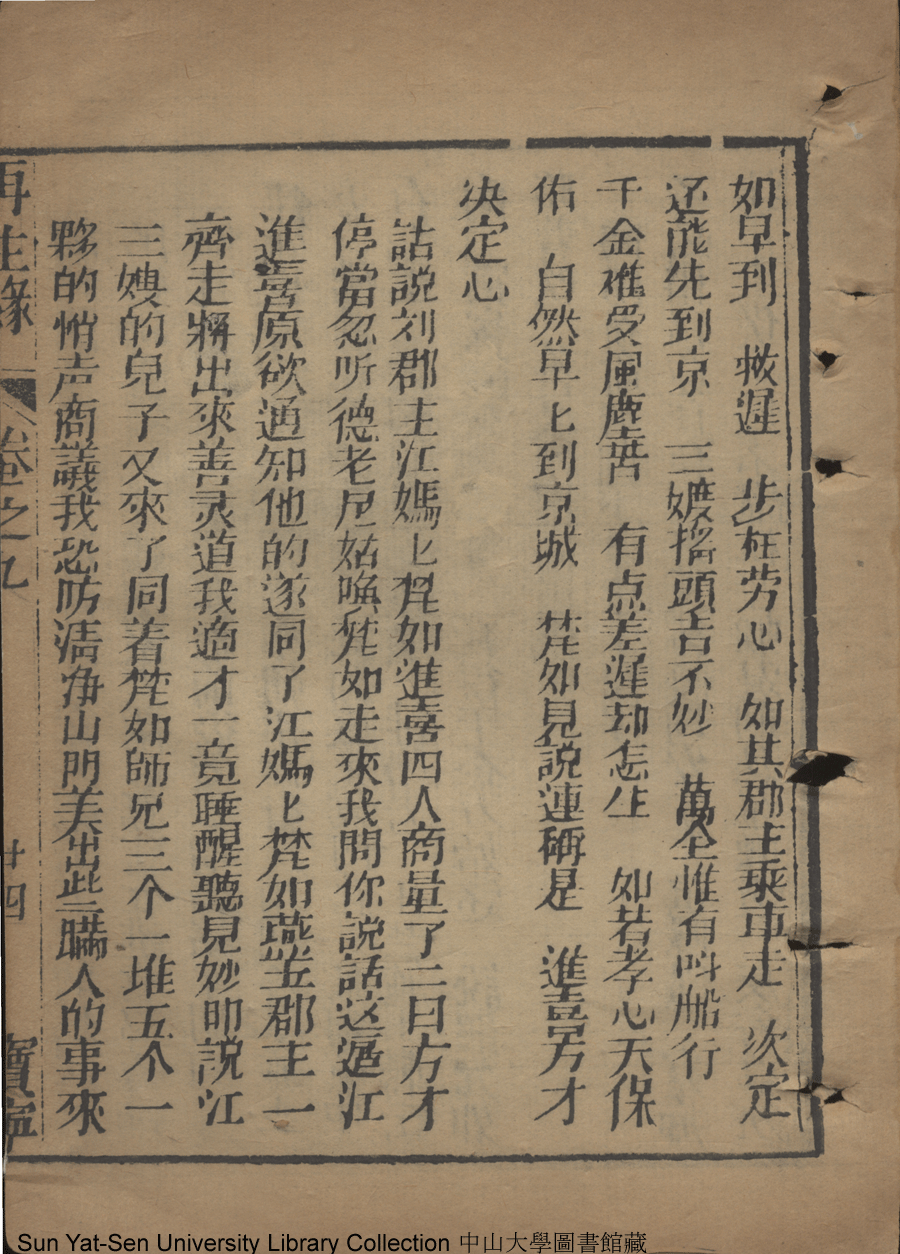 如早到　救遲　步枉劳心　如其郡主乘車走　次定
还能先到京　三嫂搖頭言不妙　萬全惟有叫船行
千金难受風塵苦　有点差遲却怎生　如若孝心天保
佑　自然早匕到京城　梵如見說連稱是　進喜方才
决定心
話說刘郡主江媽匕梵如進喜四人商量了二日方才
停當忽听德老尼姑喚梵如走來我問你說話这遍江
進喜原欲通知他的遂同了江媽匕梵如燕玉郡主一
齊走將出來善灵道我適才一竟睡醒聽見妙印說江
三嫂的兒子又來了同着梵如師兄三个一堆五个一
夥的悄声商議我恐防清净山門美出些瞞人的事來
再生緣　卷之九　廿四　寶寧
Sun Yat-Sen University Library Collection 中山大學圖書館藏